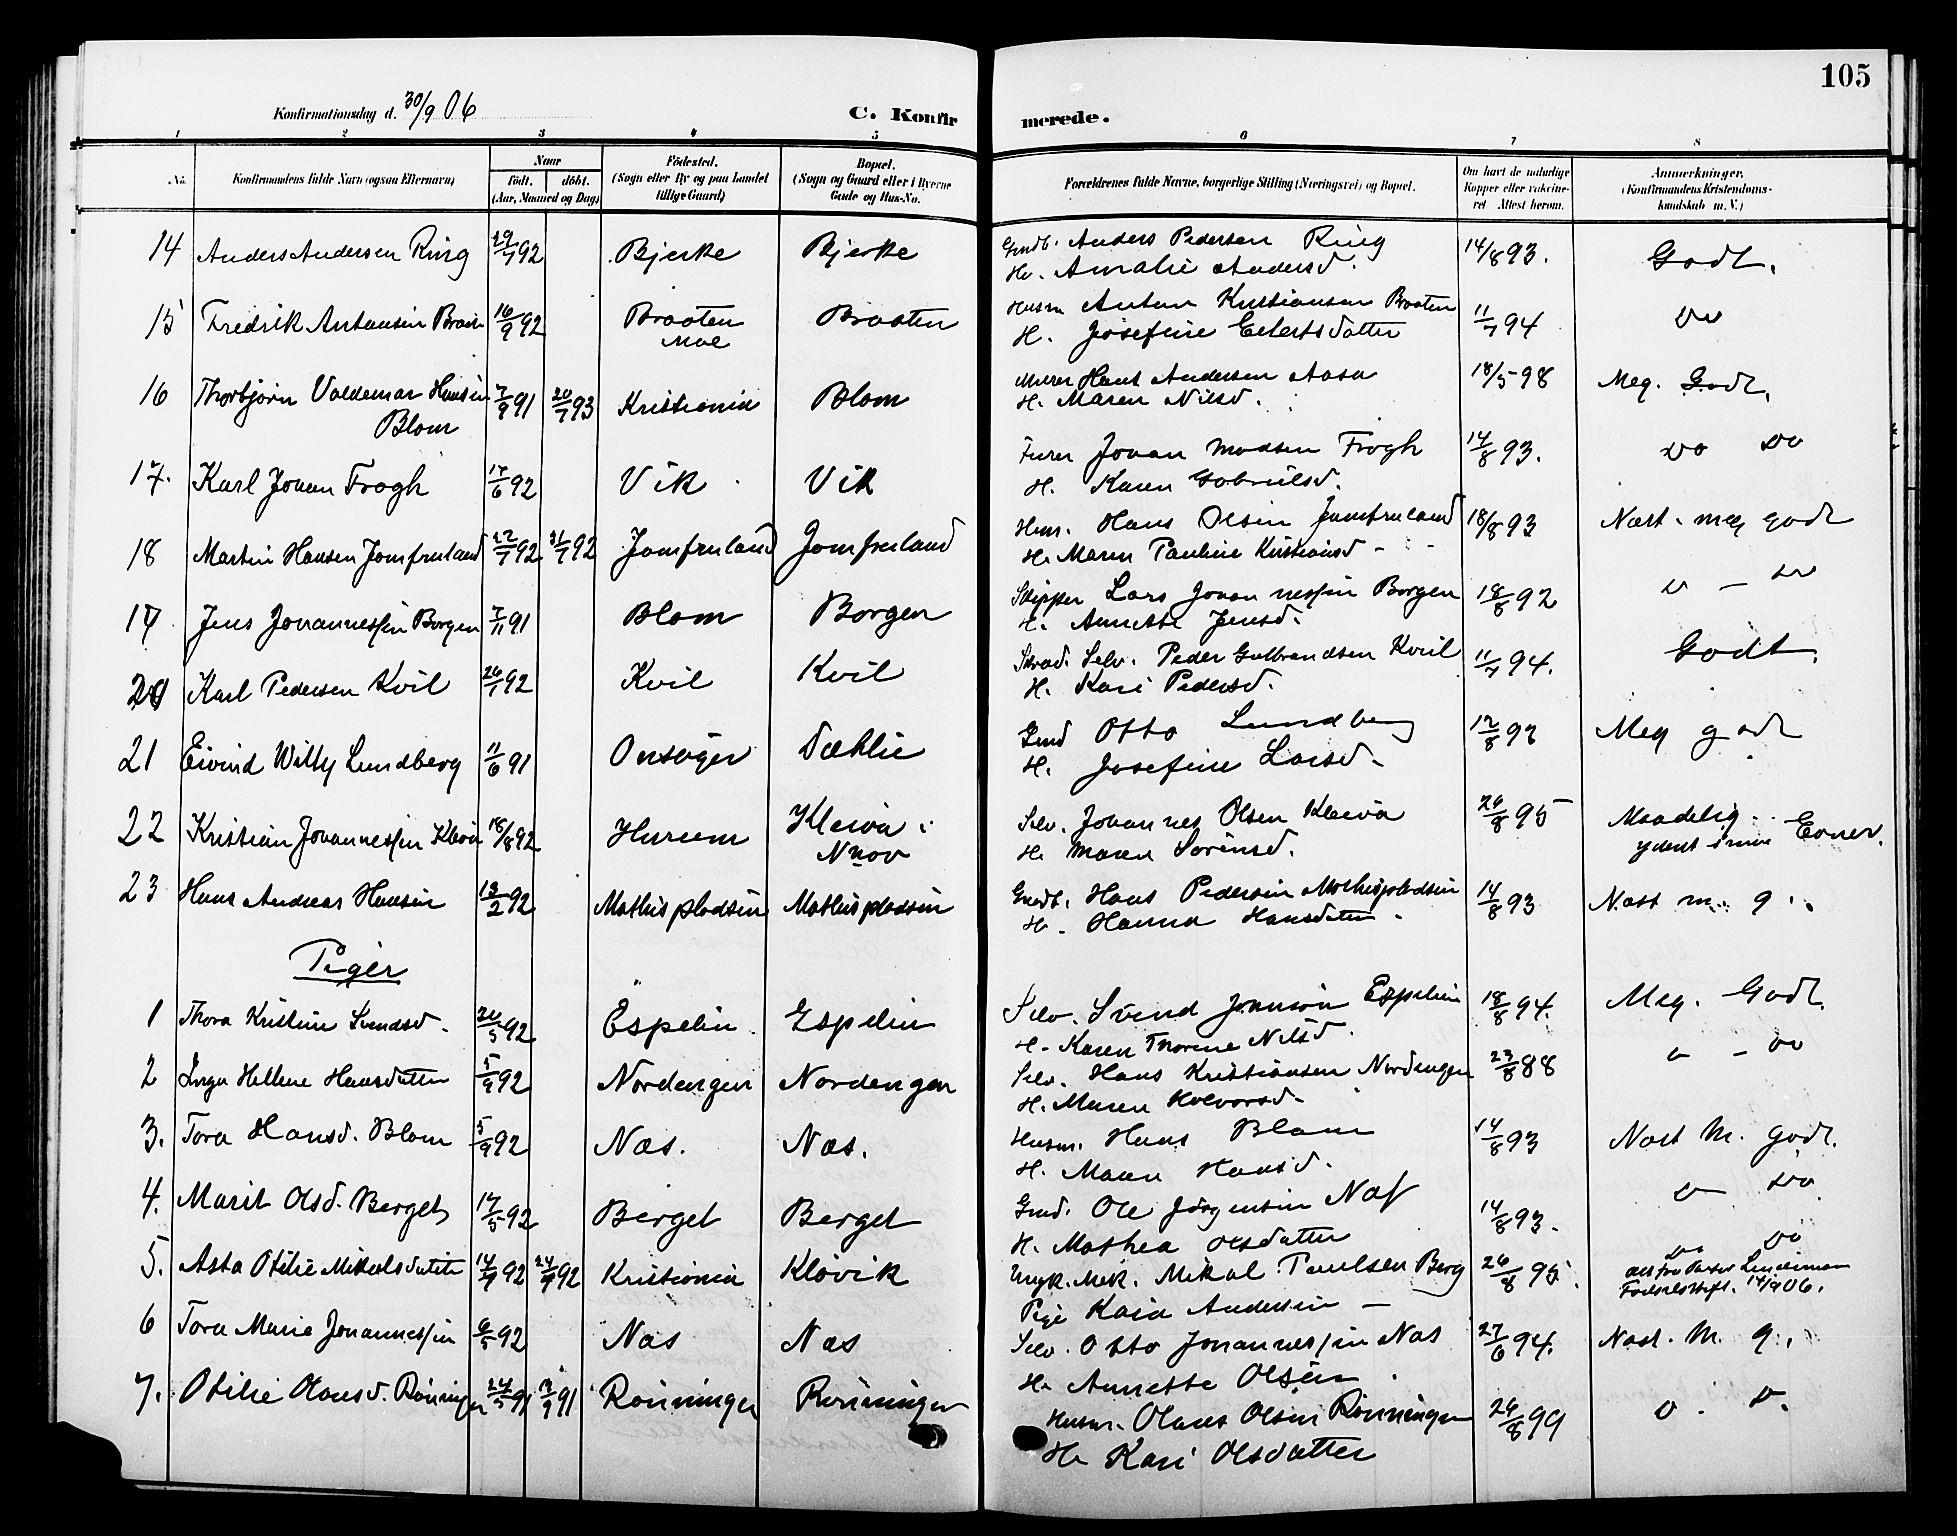 105
Konfirmationsdag d. 30/9 06
C. Konfirmerede.
1 2 3 4 5 6 7 8
No.
Konfirmandens fulde Navn (ogsaa Efternavn)
Naar
Født. døbt.
(Aar, Maaned og Dag)
Födested.
(Sogn eller By og paa Landet
tillige Gaard)
Bopæl.
(Sogn og Gaard eller i Byerne
Gade og Hus-No.
Forældrenes fulde Navne, borgerlige Stilling (Næringsvei) og Bopæl.
Om havt de naturlige
Kopper eller vaccine-
ret Attest herom.
Anmerkninger.
(Konfirmandens Kristendoms-
kundskab m. V.)
14 Anders Andersen Ring 29/7 92 Bjerke Bjerke Gmdb. Anders Pedersen Ring 14/8 93. Godt.
H. Amalie Andersd.
15 Fredrik Antonsen Braaten 16/9 92 Braaten Braaten Husm Anton Kristiansen Braaten 11/7 94 Do
Moe H. Josefine Eilertsdatter
16 Thorbjørn Valdemar Hansen 7/9 91 20/7 93 Kristiania Blom Murer Hans Andersen Aasa 18/5 98 Meg. Godt.
Blom H. Maren Nilsd.
17. Karl Johan Frogh 17/6 92 Vik Vik Furer Johan Madsen Frogh 14/8 93. Do Do
H. Karen Gabrielsd.
18 Martin Hansen Jomfruland 22/7 92 31/7 92 Jomfruland Jomfruland Hus. Hans Olsen Jomfruland 18/8 93 Næst. meg godt
H. Maren Pauline Kristiansd
19 Jens Johannessen Borgen 7/11 91 Blom Borgen Skipper Lars Johannessen Borgen 18/8 92 D - Do
H. Annette Jensd.
20 Karl Pedersen Kvil 26/1 92 Kvil Kvil Selv. Peder Gulbrandsen Kvil 11/7 94. Godt.
H. Kari Pedersd.
21 Eivind Willy Lundberg 11/6 91 Onsøger Dæhlie Gmd Otto Lundberg 12/8 92 Meg godt
H. Josefine Larsd.
22 Kristian Johannessen Kleiva 18/8 92 Hurum Kleiva i Selv. Johannes Olsen Kleiva 26/8 95 Maadelig.
Nnov H. Maren Sørensd. ydent smaa Evner.
23 Hans Andreas Hansen 13/2 92 Mathispladsen Mathispladsen Gmdb. Hans Pedersen Mathispladsen 14/8 93 Næst m. g.
H. Hanna Hansdatter
Piger
1 Thora Kristine Svendsd. 20/5 92 Espelin Espelin Selv. Svend Jonsøn Espelien 18/8 94. Meg. Godt
H. Karen Thorine Nilsd.
2 Inga Hellene Hansdatter 5/9 92 Nordengen Nordengen Selv. Hans Kristiansen Nordengen 23/8 88 D - Do
H. Maren Halvorsd.
3. Tora Hansd. Blom 5/9 92 Næs. Næs. Husm. Hans Blom 14/8 93 Næst M. godt.
H. Maren Hansd.
4. Marit Olsd. Berget 17/5 92 Berget Berget Gmd. Ole Jørgensen Næs 14/8 93. D Do
H. Mathea Olsdatter
5. Asta Otilie Mikalsdatter 14/7 92 24/7 92 Kristiania Kløvik Ungk. Mek. Mikal Paulsen Berg 26/8 95. Do Do
Pige Kaia Andersen Att fra Pastor Lindeman
Fødselsstift. 14/9 06.
6 Tora Marie Johannessen 6/5 92 Næs Næs Selv. Otto Johannessen Næs 27/6 94. Næst. M. g.
H. Annette Olsen
7. Otilie Olausd. Rønningen 24/5 91 91 Rønningen Rønningen Husm. Olaus Olsen Rønningen 26/8 99 D. D.
H. Kari Olsdatter